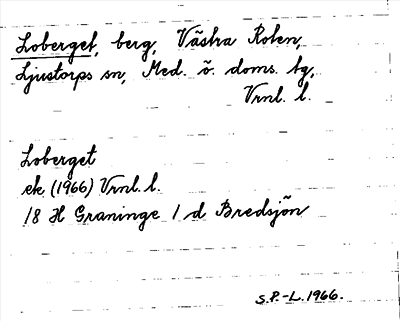 Loberget, berg, Västra Roten,
Ljustorps sn, Med. ö. doms. tg,
Vrnl. l.
Loberget
ek (1966) Vrnl. l.
18 H Graninge 1 d Bredsjön
S.P.-L. 1966.